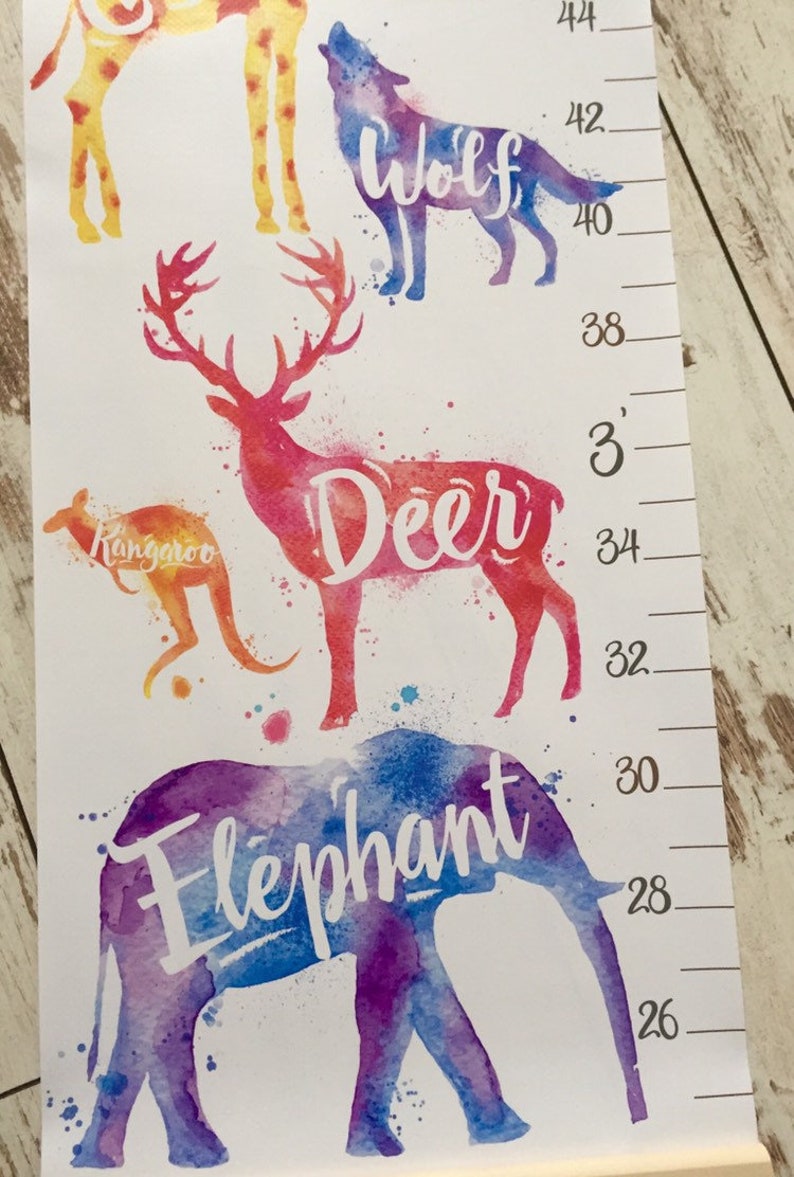 44
Wolf
42
40
38
3'
Deer
Kangaroo
34
32
30
Elephant
28
26